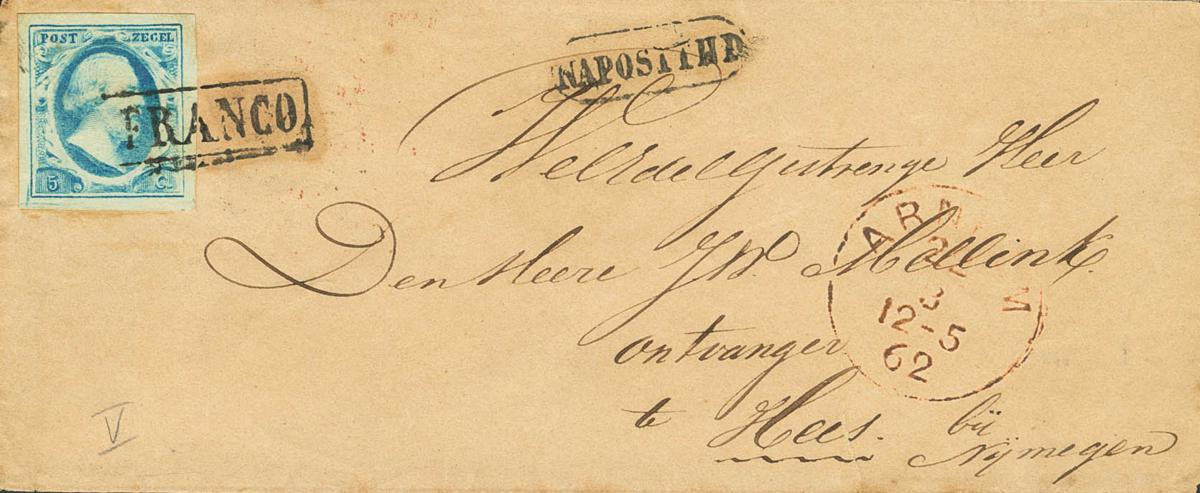 POST ZEGEL
5 C.
FRANCO
NAPOSTTIJD
WelEdelGestrenge Heer
Den Heere J.W. Mollink.
ontvanger
te Hees. bij
Nijmegen
ARNHEM
3
12-5
62
V